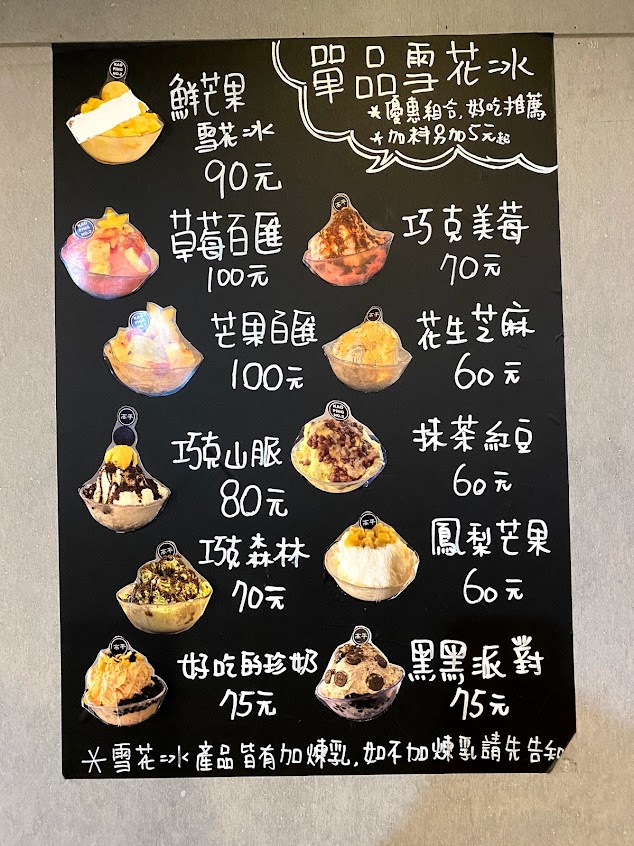 單品雪花冰
*優惠組合,好吃推薦
*加料另加5元起
鮮芒果
雪花冰
90元
草莓百匯
100元
巧克美莓
70元
芒果百匯
100元
花生芝麻
60元
巧克山脈
80元
抹茶紅豆
60元
巧克森林
70元
鳳梨芒果
60元
好吃的珍奶
75元
黑黑派對
75元
*雪花冰產品皆有加煉乳,如不加煉乳請先告知